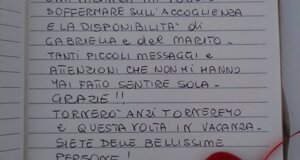 SOFFERMARE SULL'ACCOGLIENZA
E LA DISPONIBILITÀ di
GABRIELLA e del MARITO.
TANTI PICCOLI MESSAGGI e
ATTENZIONI CHE NON MI HANNO
MAI FATTO SENTIRE SOLA.
GRAZIE!!
TORNERÒ ANZI TORNEREMO
e QUESTA VOLTA IN VACANZA.
SIETE DELLE BELLISSIME
PERSONE!